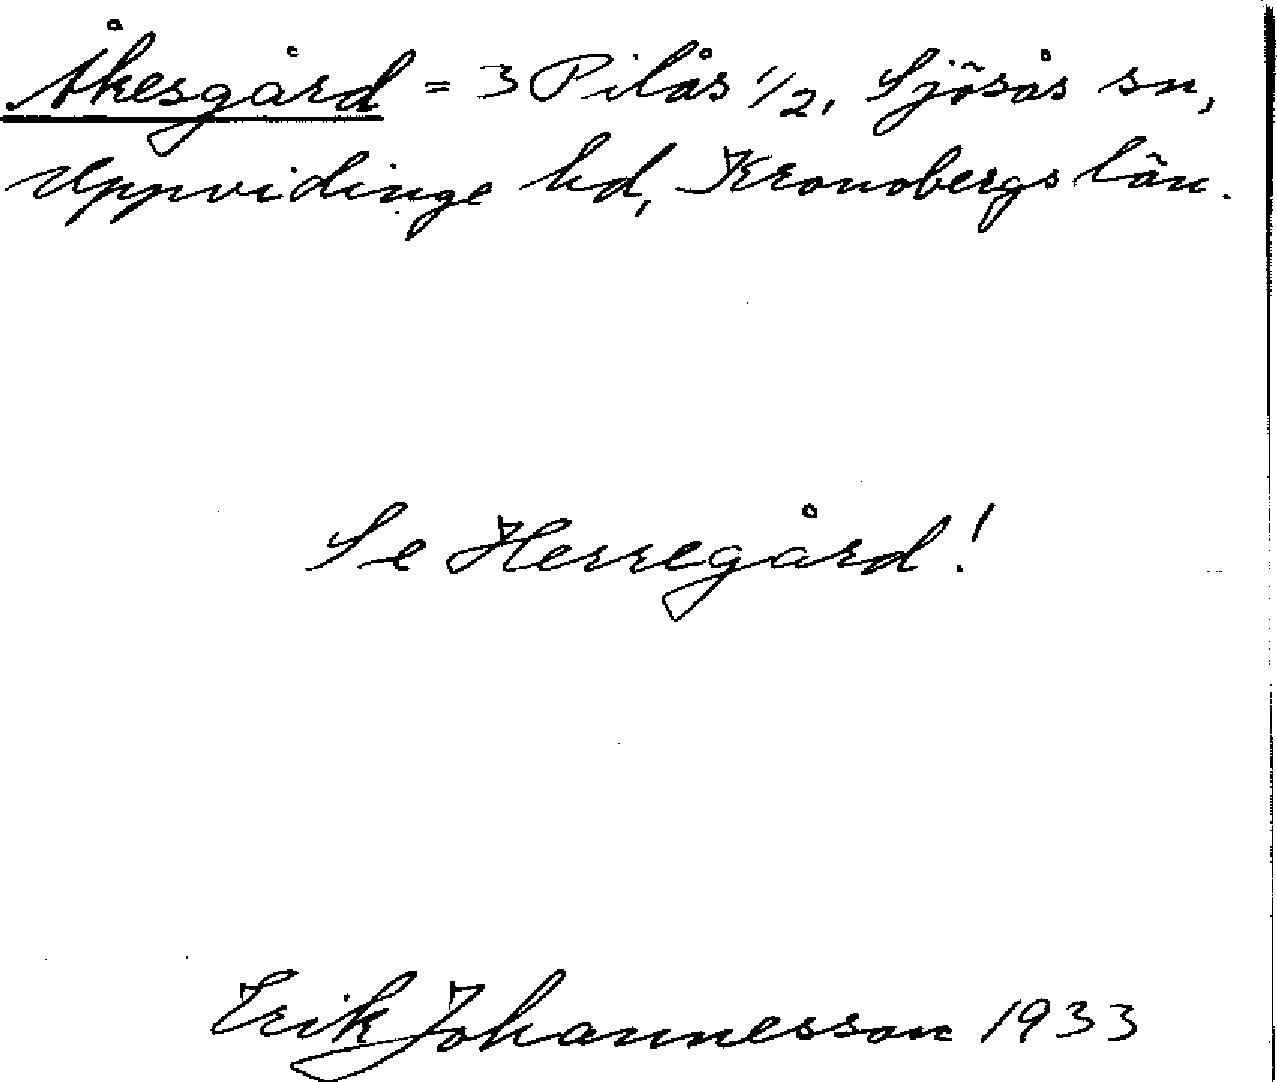 Åkesgård = 3 Pilås 1/2, Sjösås sn,
Uppvidinge hd, Kronobergs län.
Se Herregård!
Erik Johannesson 1933